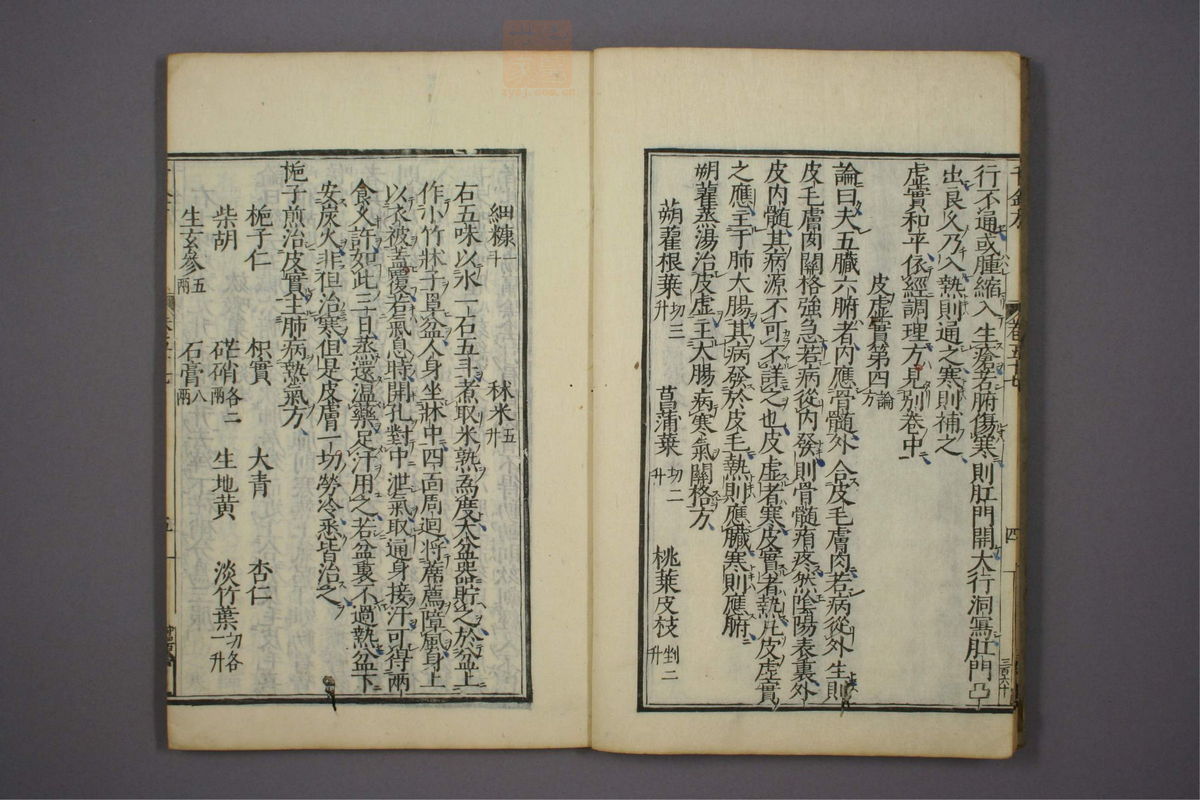 行不通或腫縮入生瘡若腑傷寒則肛門開大行洞寫肛門凸
出良久乃入熱則通之寒則補之
虛實和平依經調理方見別卷中
皮虛實第四 論 方
論曰夫五臟六腑者內應骨髓外合皮毛膚肉若病從外生則
皮毛膚肉關格強急若病從內發則骨髓痟疼然陰陽表裏外
皮內髓其病源不可不詳之也皮虛者寒皮實者熱凡皮虛實
之應主于肺大腸其病發於皮毛熱則應臟寒則應腑
蒴藋蒸湯治皮虛主大腸病寒氣關格方
蒴藋根葉切三升 菖蒲葉切二升 桃葉皮枝剉二升
細糠一斗 秫米五升
右五味以水一石五斗煮取米熟為度大盆器貯之於盆上
作小竹牀子罩盆人身坐牀中四面周迴將蓆薦障風身上
以衣被蓋覆若氣息時開孔對中泄氣取通身接汗可得兩
食久許如此三日蒸還溫藥足汗用之若盆裏不過熱盆下
安炭火非但治寒但是皮膚一切勞冷悉皆治之
梔子煎治皮實主肺病熱氣方
梔子仁 枳實 大青 杏仁
柴胡 芒硝各二兩 生地黃 淡竹葉切各一升
生玄參五兩 石膏八兩